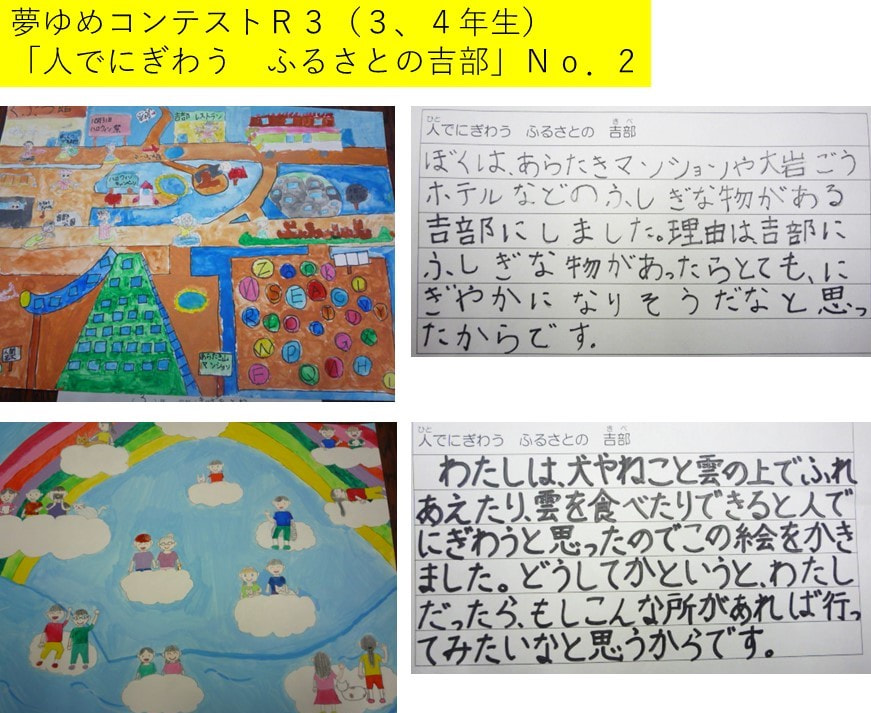 夢ゆめコンテストR3（3、4年生）
「人でにぎわう　ふるさとの吉部」No．2
吉部 レストラン
ひと　きべ
人でにぎわう　ふるさとの　吉部
ぼくは、あらたきマンションや大岩ごう
ホテルなどのふしぎな物がある
吉部にしました。理由は吉部に
ふしぎな物があったらとても、に
ぎやかになりそうだなと思っ
たからです.
ひと　きべ
人でにぎわう　ふるさとの　吉部
わたしは、犬やねこと雲の上でふれ
あえたり、雲を食べたりできると人で
にぎわうと思ったのでこの絵をかき
ました。どうしてかというと、わたし
だったら、もしこんな所があれば行っ
てみたいなと思うからです。